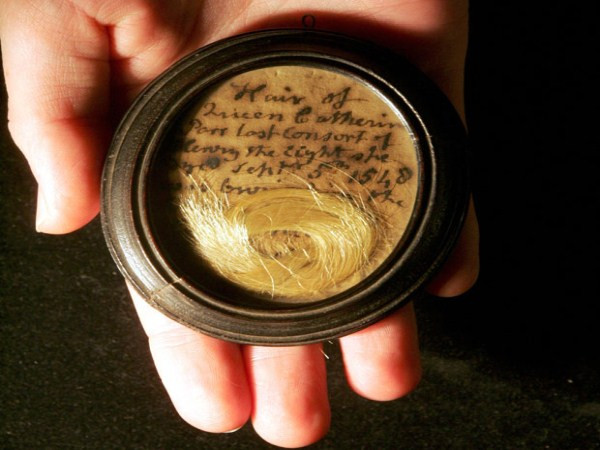 Hair of
Queen Catherin
Parr Last Consort of
Henry the Eight she
Sept 5th 1548
the